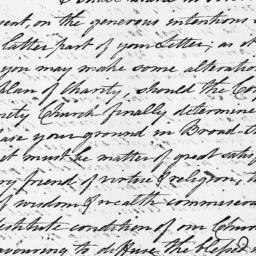 sent, on the generous intentions
latter part of your Letter; as it
you may make some alteration
plan of Charity, should the Co
nety Church finally determine
ase your ground in Broad-st
it must be matter of great satis
ry friend of virtue & religion, t
of wisdom & wealth commiserat
estitute condition of our Church
vouring to diffuse the blessed